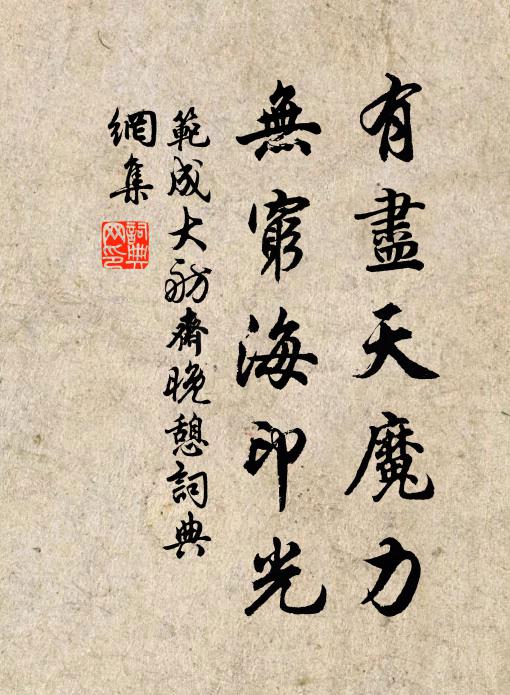 有盡天魔力
無窮海印光
範成大舫齋晚憩詞典
網集
詞典
网印